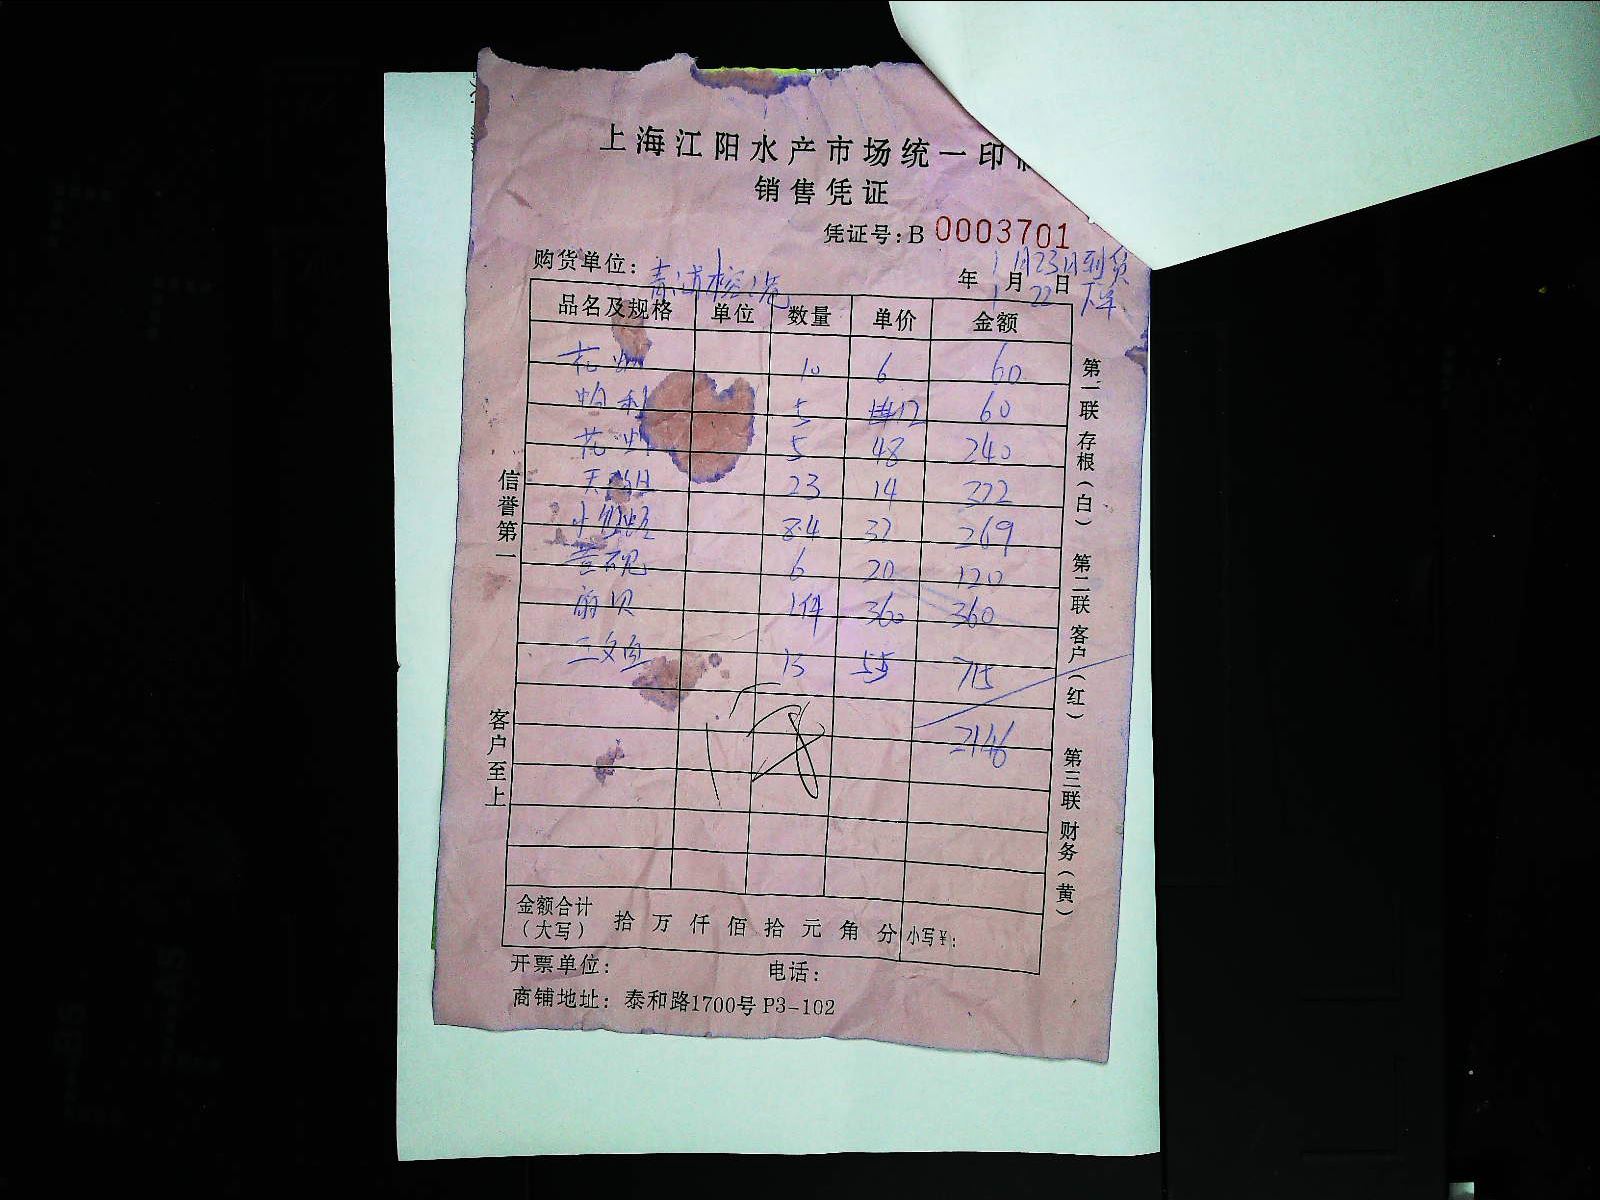 上海江阳水产市场统一印
销售凭证
凭证号:B 0003701
1月23日到货
购货单位: 青浦 年 月 日
1 22 下单
品名及规格 单位 数量 单价 金额
花 10 6 60
帕利 5 12 60
花 5 48 240
天 23 14 322
小 8.4 32 269
6 20 120
扇贝 1件 360 360
三文鱼 13 55 715
2146
金额合计(大写) 拾 万 仟 佰 拾 元 角 分 小写¥:
开票单位: 电话:
商铺地址: 泰和路1700号 P3-102
信誉第一
客户至上
第一联 存根(白) 第二联 客户(红) 第三联 财务(黄)